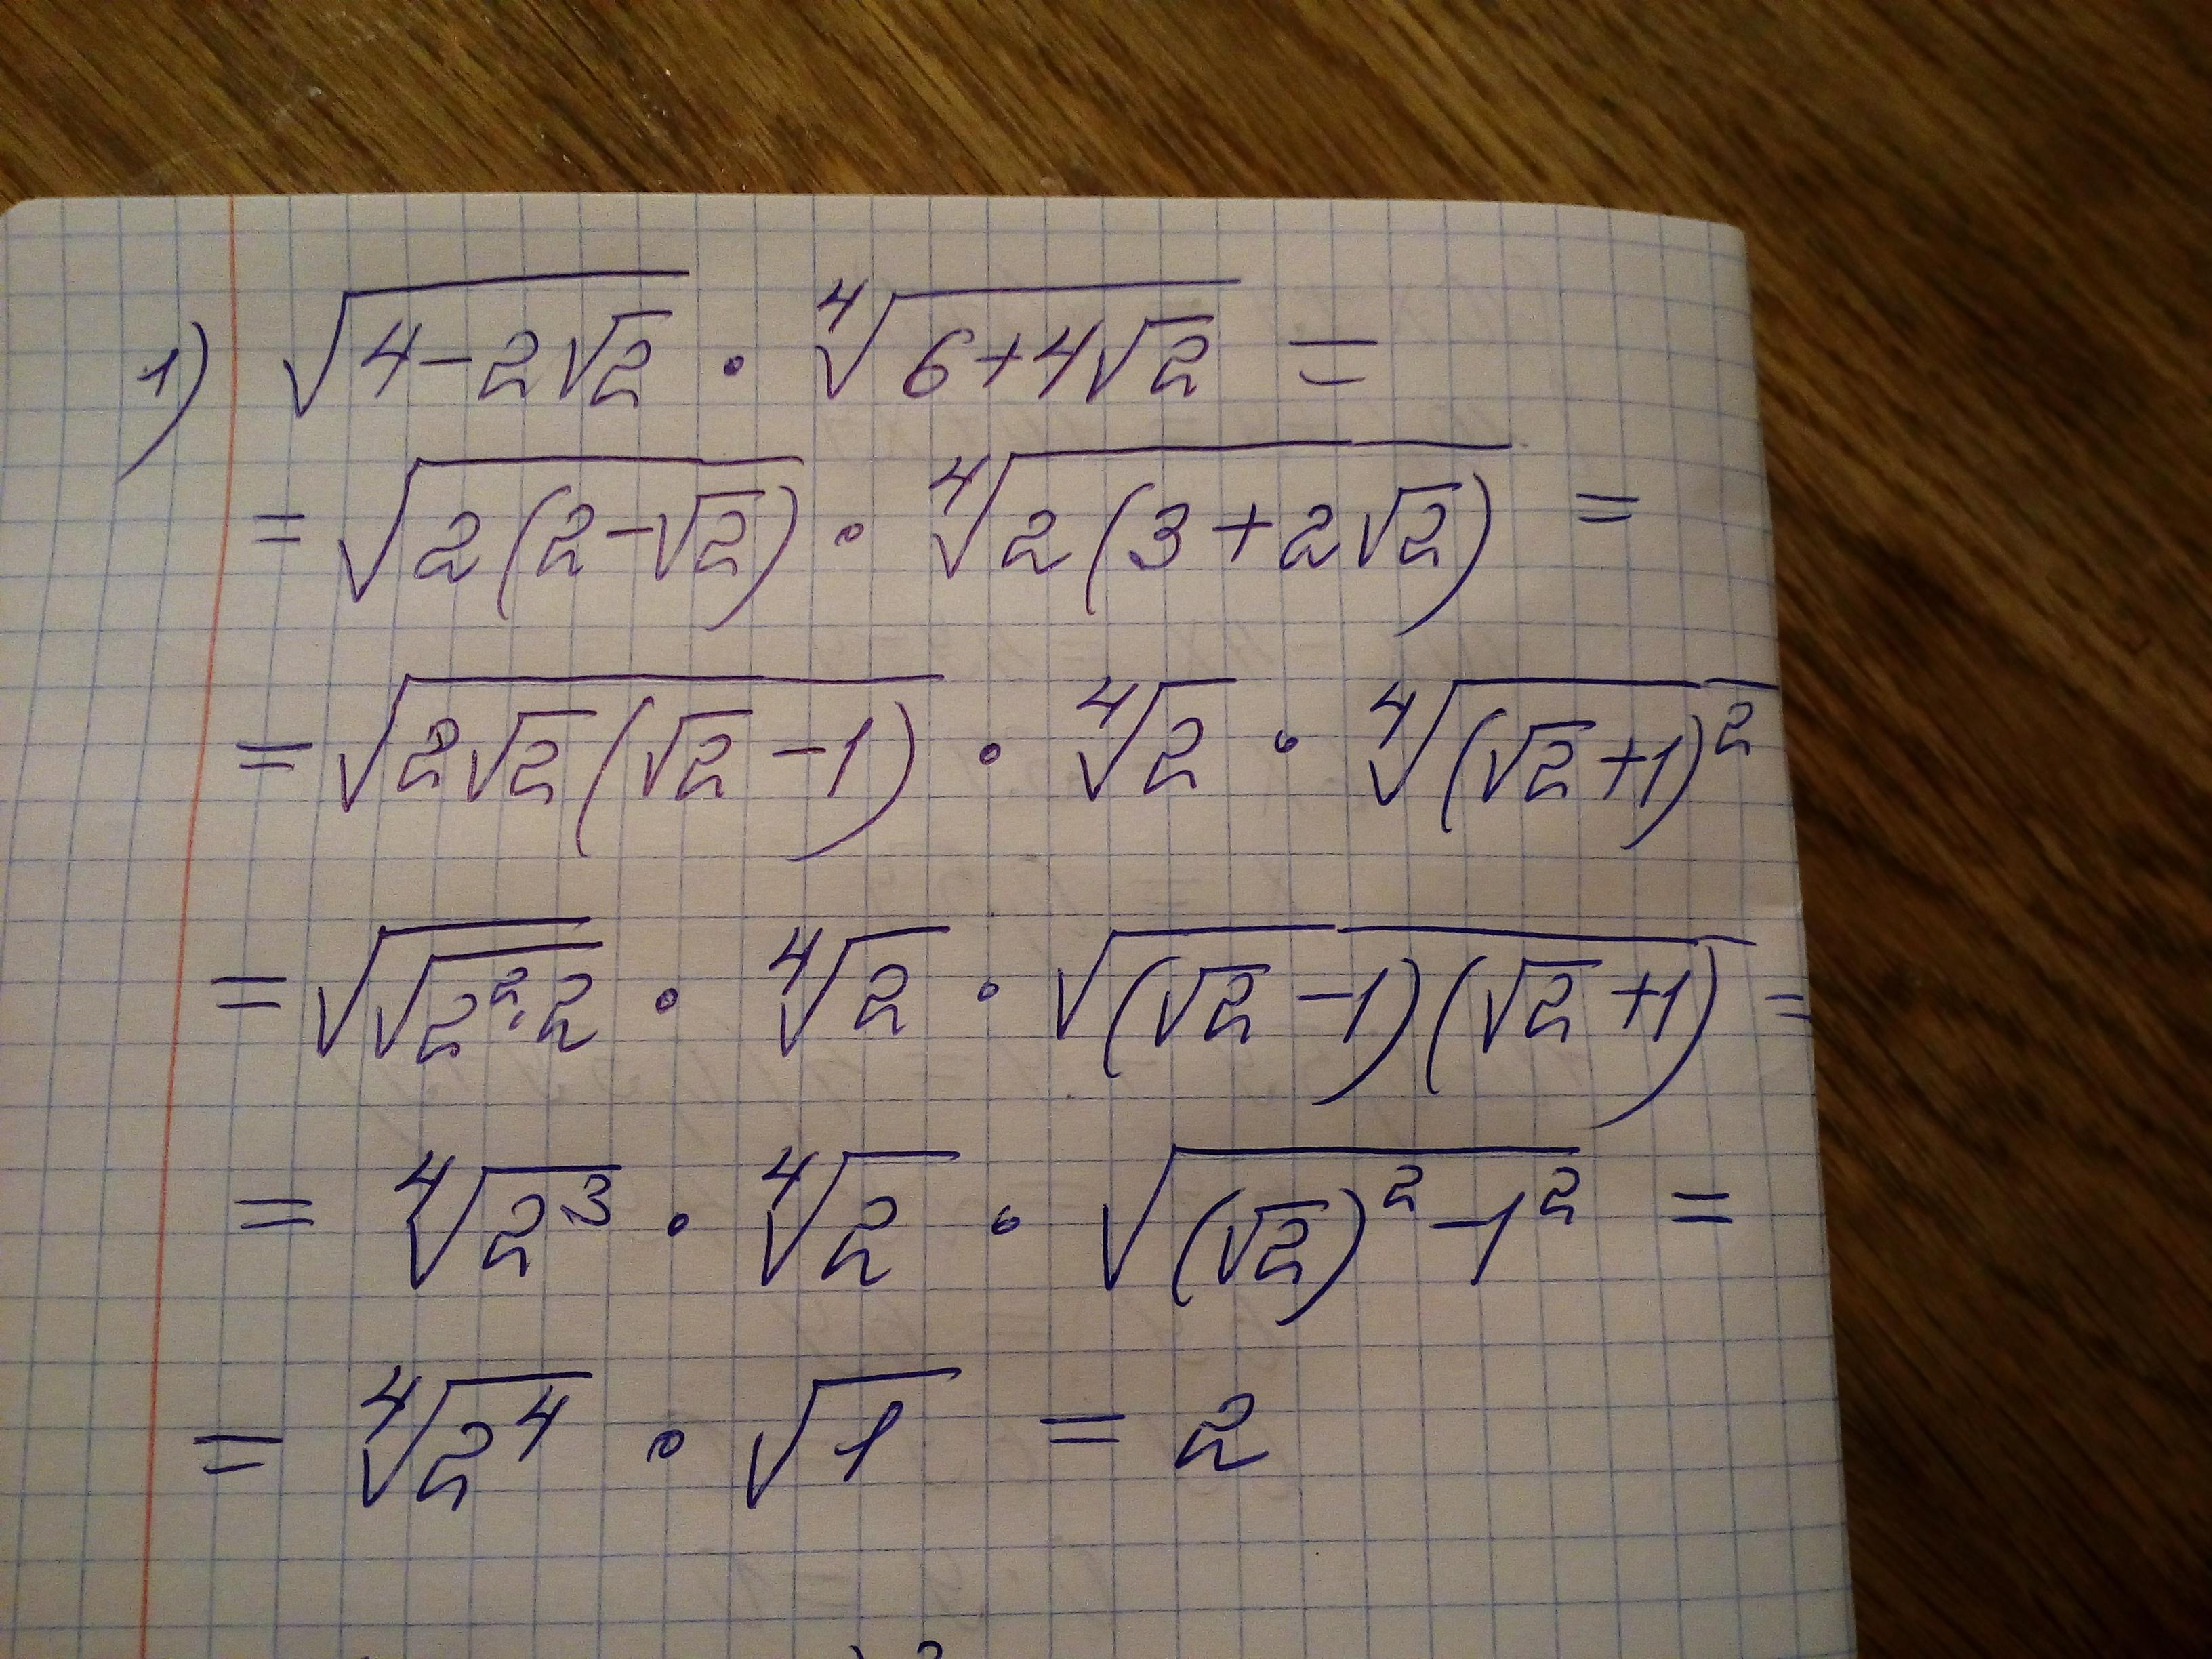 1) √(4-2√2) · ⁴√(6+4√2) =
= √(2(2-√2)) · ⁴√(2(3+2√2)) =
= √(2√2(√2-1)) · ⁴√2 · ⁴√((√2+1)²)
= √(√(2²·2)) · ⁴√2 · √((√2-1)(√2+1)) =
= ⁴√(2³) · ⁴√2 · √((√2)²-1²) =
= ⁴√(2⁴) · √1 = 2